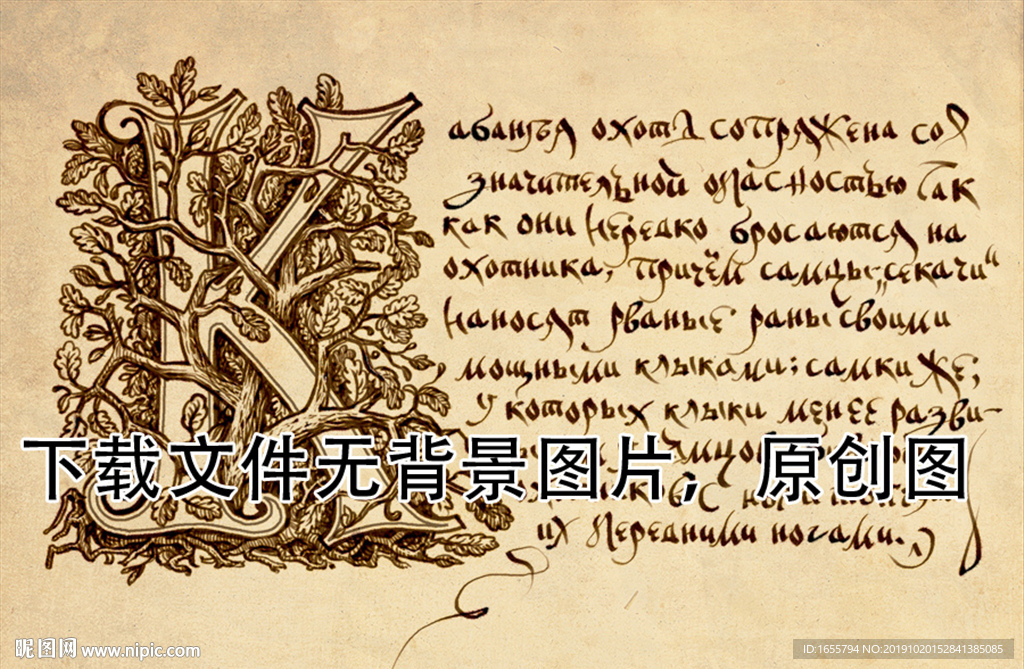 Кабанья охота сопряжена со
значительной опасностью так
как они нередко бросаются на
охотника, причём самцы „секачи“
наносят рваные раны своими
мощными клыками; самки же,
у которых клыки менее разви-
下载文件无背景图片， 原创图
их передними ногами.
昵图网 www.nipic.com
ID:1655794 NO:20191020152841385085